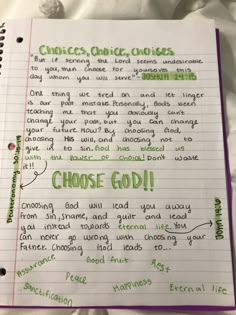 Choices, Choice, choises
"But if serving the Lord seems undesirable
to you, then choose for yourselves this
day whom you will serve" - JOSHUA 24:15
One thing we tred on and let linger
is our past mistake. Personally, God's been
teaching me that you obviously can't
change your past, but you can change
your future. How? By choosing God,
choosing His will, and choosing not to
give in to sin. God has blessed us
with the power of choice! Don't waste
it!!
Deuteronomy 30:19
CHOOSE GOD!!
Choosing God will lead you away
from sin, shame, and guilt and lead
you instead towards eternal life. You
can never go wrong with choosing your
Father. Choosing God leads to...
John
Assurance
Good fruit
Rest
Peace
Happiness
Sanctification
Eternal life